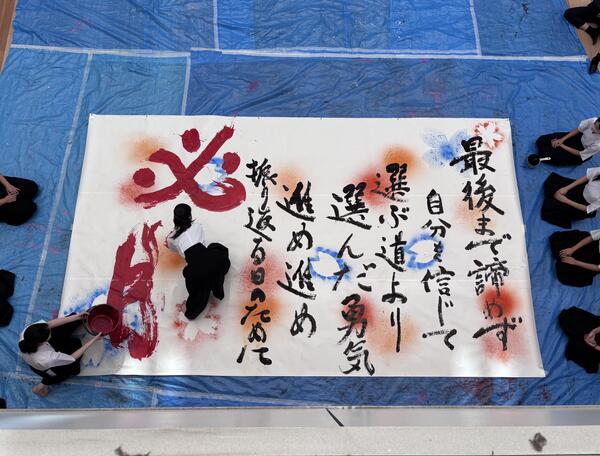 最後まで諦めず
自分を信じて
選ぶ道より
選んだ勇気
進め進め
振り返る日のために
必